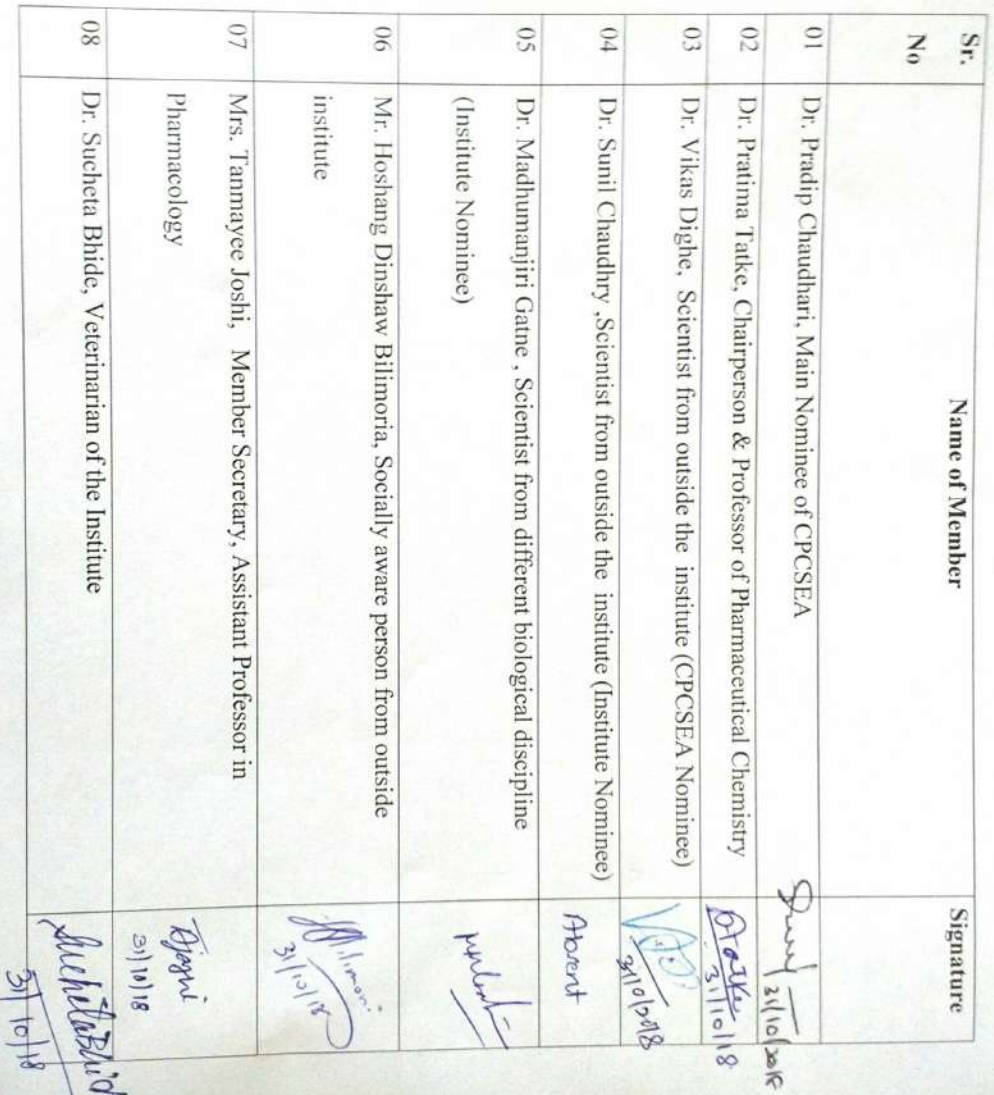 Sr. No Name of Member Signature
01 Dr. Pradip Chaudhari, Main Nominee of CPCSEA 31/10/2018
02 Dr. Pratima Tatke, Chairperson & Professor of Pharmaceutical Chemistry PTatke 31/10/18
03 Dr. Vikas Dighe, Scientist from outside the institute (CPCSEA Nominee) 31/10/2018
04 Dr. Sunil Chaudhry ,Scientist from outside the institute (Institute Nominee) Absent
05 Dr. Madhumanjiri Gatne , Scientist from different biological discipline
(Institute Nominee)
06 Mr. Hoshang Dinshaw Bilimoria, Socially aware person from outside
institute 31/10/18
07 Mrs. Tanmayee Joshi, Member Secretary, Assistant Professor in
Pharmacology 31/10/18
08 Dr. Sucheta Bhide, Veterinarian of the Institute SuchetaBhid
31/10/18